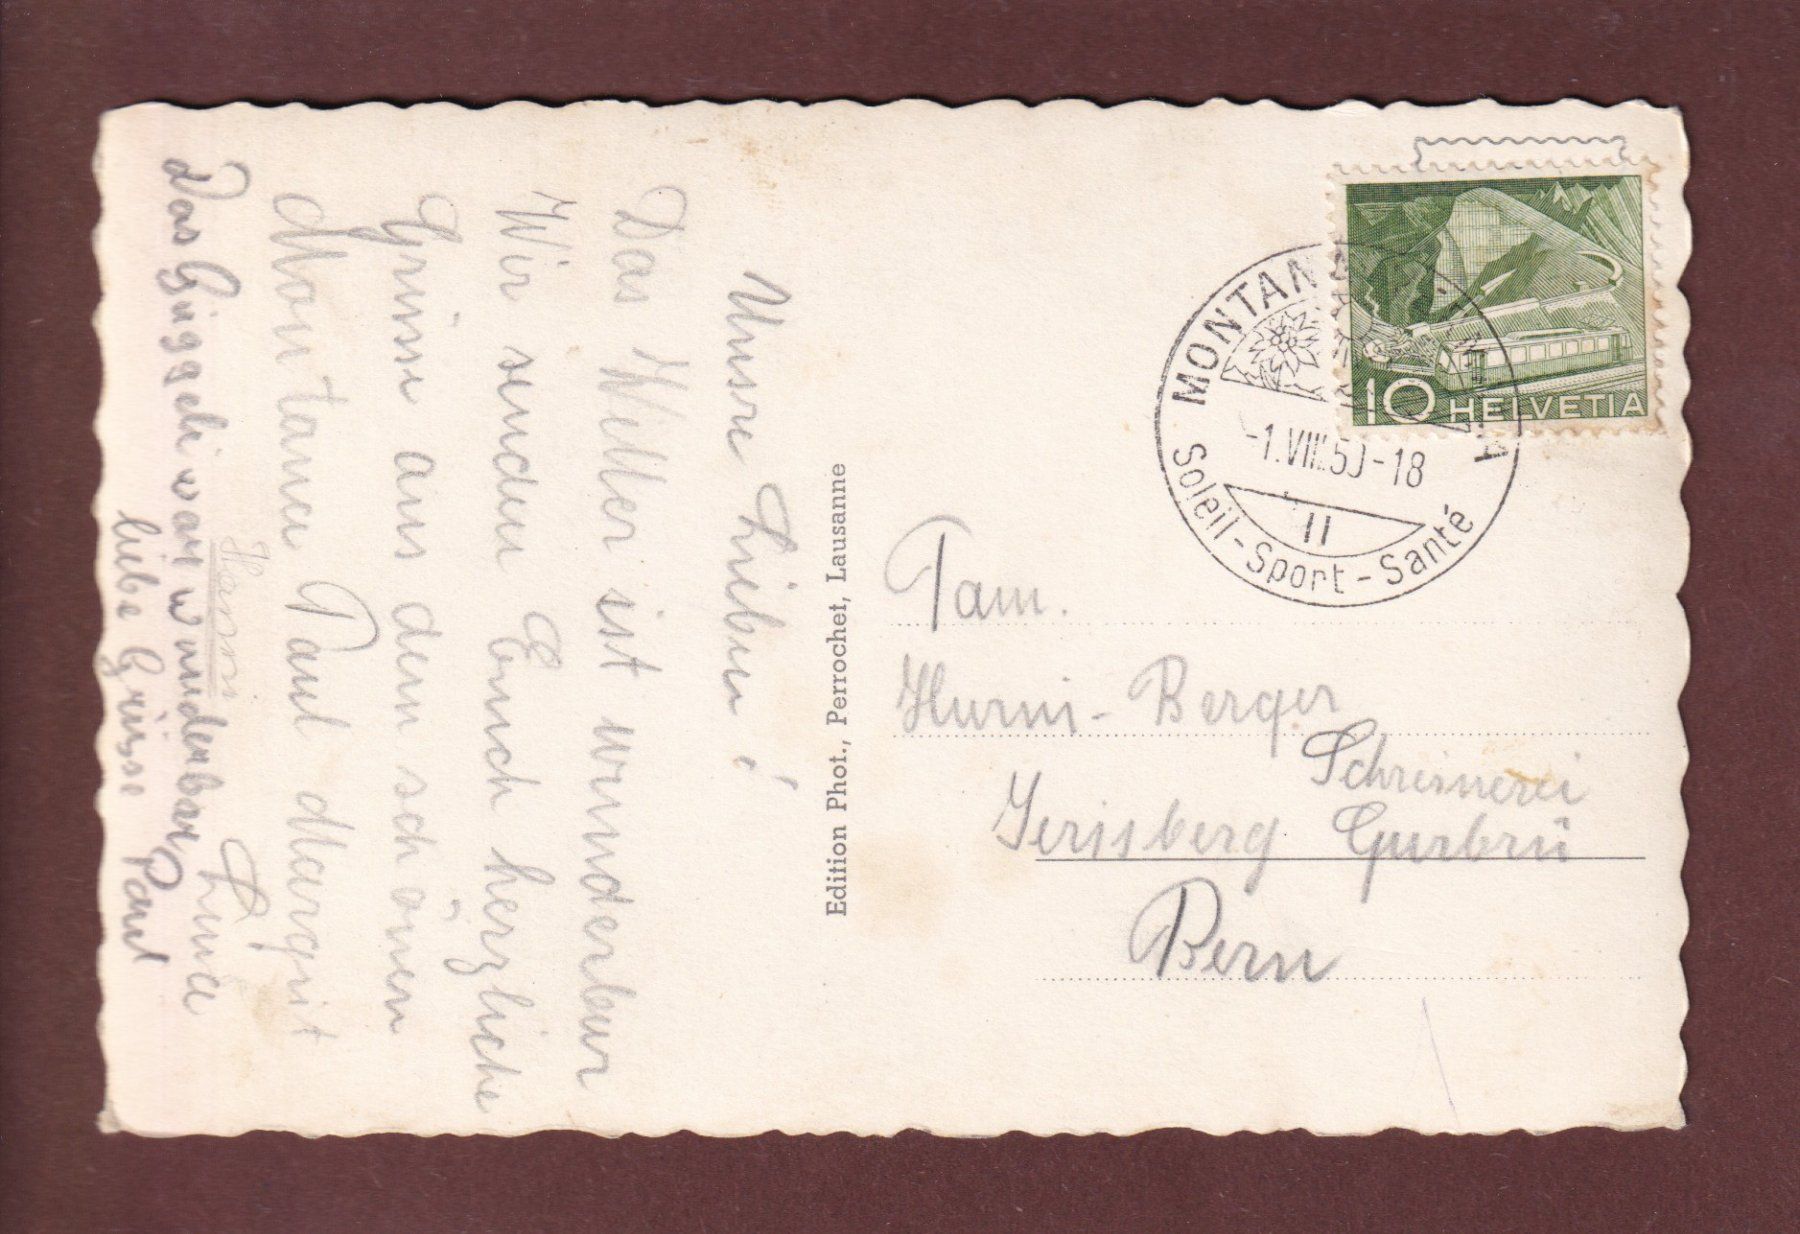 Unsre Lieben!
Das Wetter ist wunderbar
Wir senden Euch herzliche
Grüsse aus dem schönen
Montana Paul Margrit
Hanni Luna
Das Güggeli war wunderbar
liebe Grüsse Paul
Edition Phot., Perrochet, Lausanne
MONTANA-VERMALA
-1.VIII.50-18
II
Soleil-Sport-Santé
10 HELVETIA
Fam.
Hurni-Berger
Schreinerei
Jerisberg Gurbrü
Bern